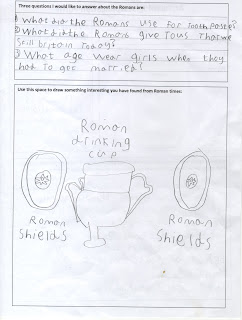 Three questions I would like to answer about the Romans are:
1 what did the Romans use for toothpaste?
2 what did the Romans give to us that we
still britain today?
3 What age wear girls when they
had to get married?
Use this space to draw something interesting you have found from Roman times:
Roman
drinking
cup
Roman
Shields
Roman
Shields